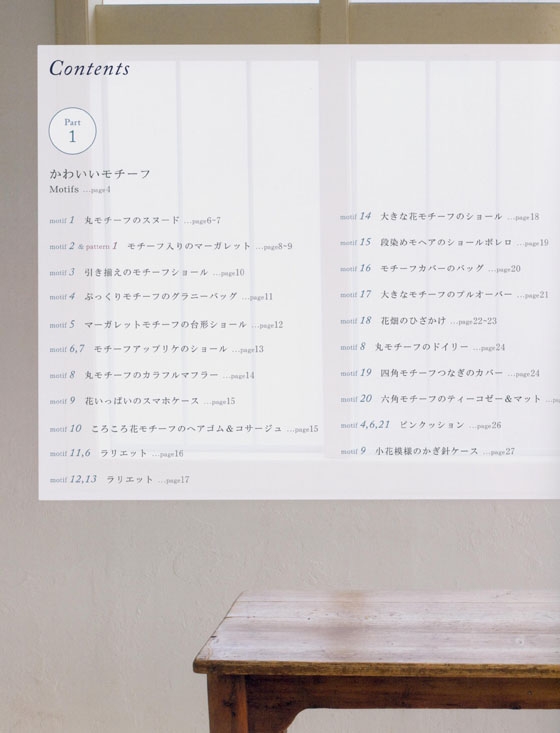 Contents
Part
1
かわいいモチーフ
Motifs …page4
motif 1 丸モチーフのスヌード …page6-7
motif 2 & pattern 1 モチーフ入りのマーガレット …page8-9
motif 3 引き揃えのモチーフショール …page10
motif 4 ぷっくりモチーフのグラニーバッグ …page11
motif 5 マーガレットモチーフの台形ショール …page12
motif 6,7 モチーフアップリケのショール …page13
motif 8 丸モチーフのカラフルマフラー …page14
motif 9 花いっぱいのスマホケース …page15
motif 10 ころころ花モチーフのヘアゴム＆コサージュ …page15
motif 11,6 ラリエット …page16
motif 12,13 ラリエット …page17
motif 14 大きな花モチーフのショール …page18
motif 15 段染めモヘアのショールボレロ …page19
motif 16 モチーフカバーのバッグ …page20
motif 17 大きなモチーフのプルオーバー …page21
motif 18 花畑のひざかけ …page22-23
motif 8 丸モチーフのドイリー …page24
motif 19 四角モチーフつなぎのカバー …page24
motif 20 六角モチーフのティーコゼー＆マット …
motif 4,6,21 ピンクッション …page26
motif 9 小花模様のかぎ針ケース …page27